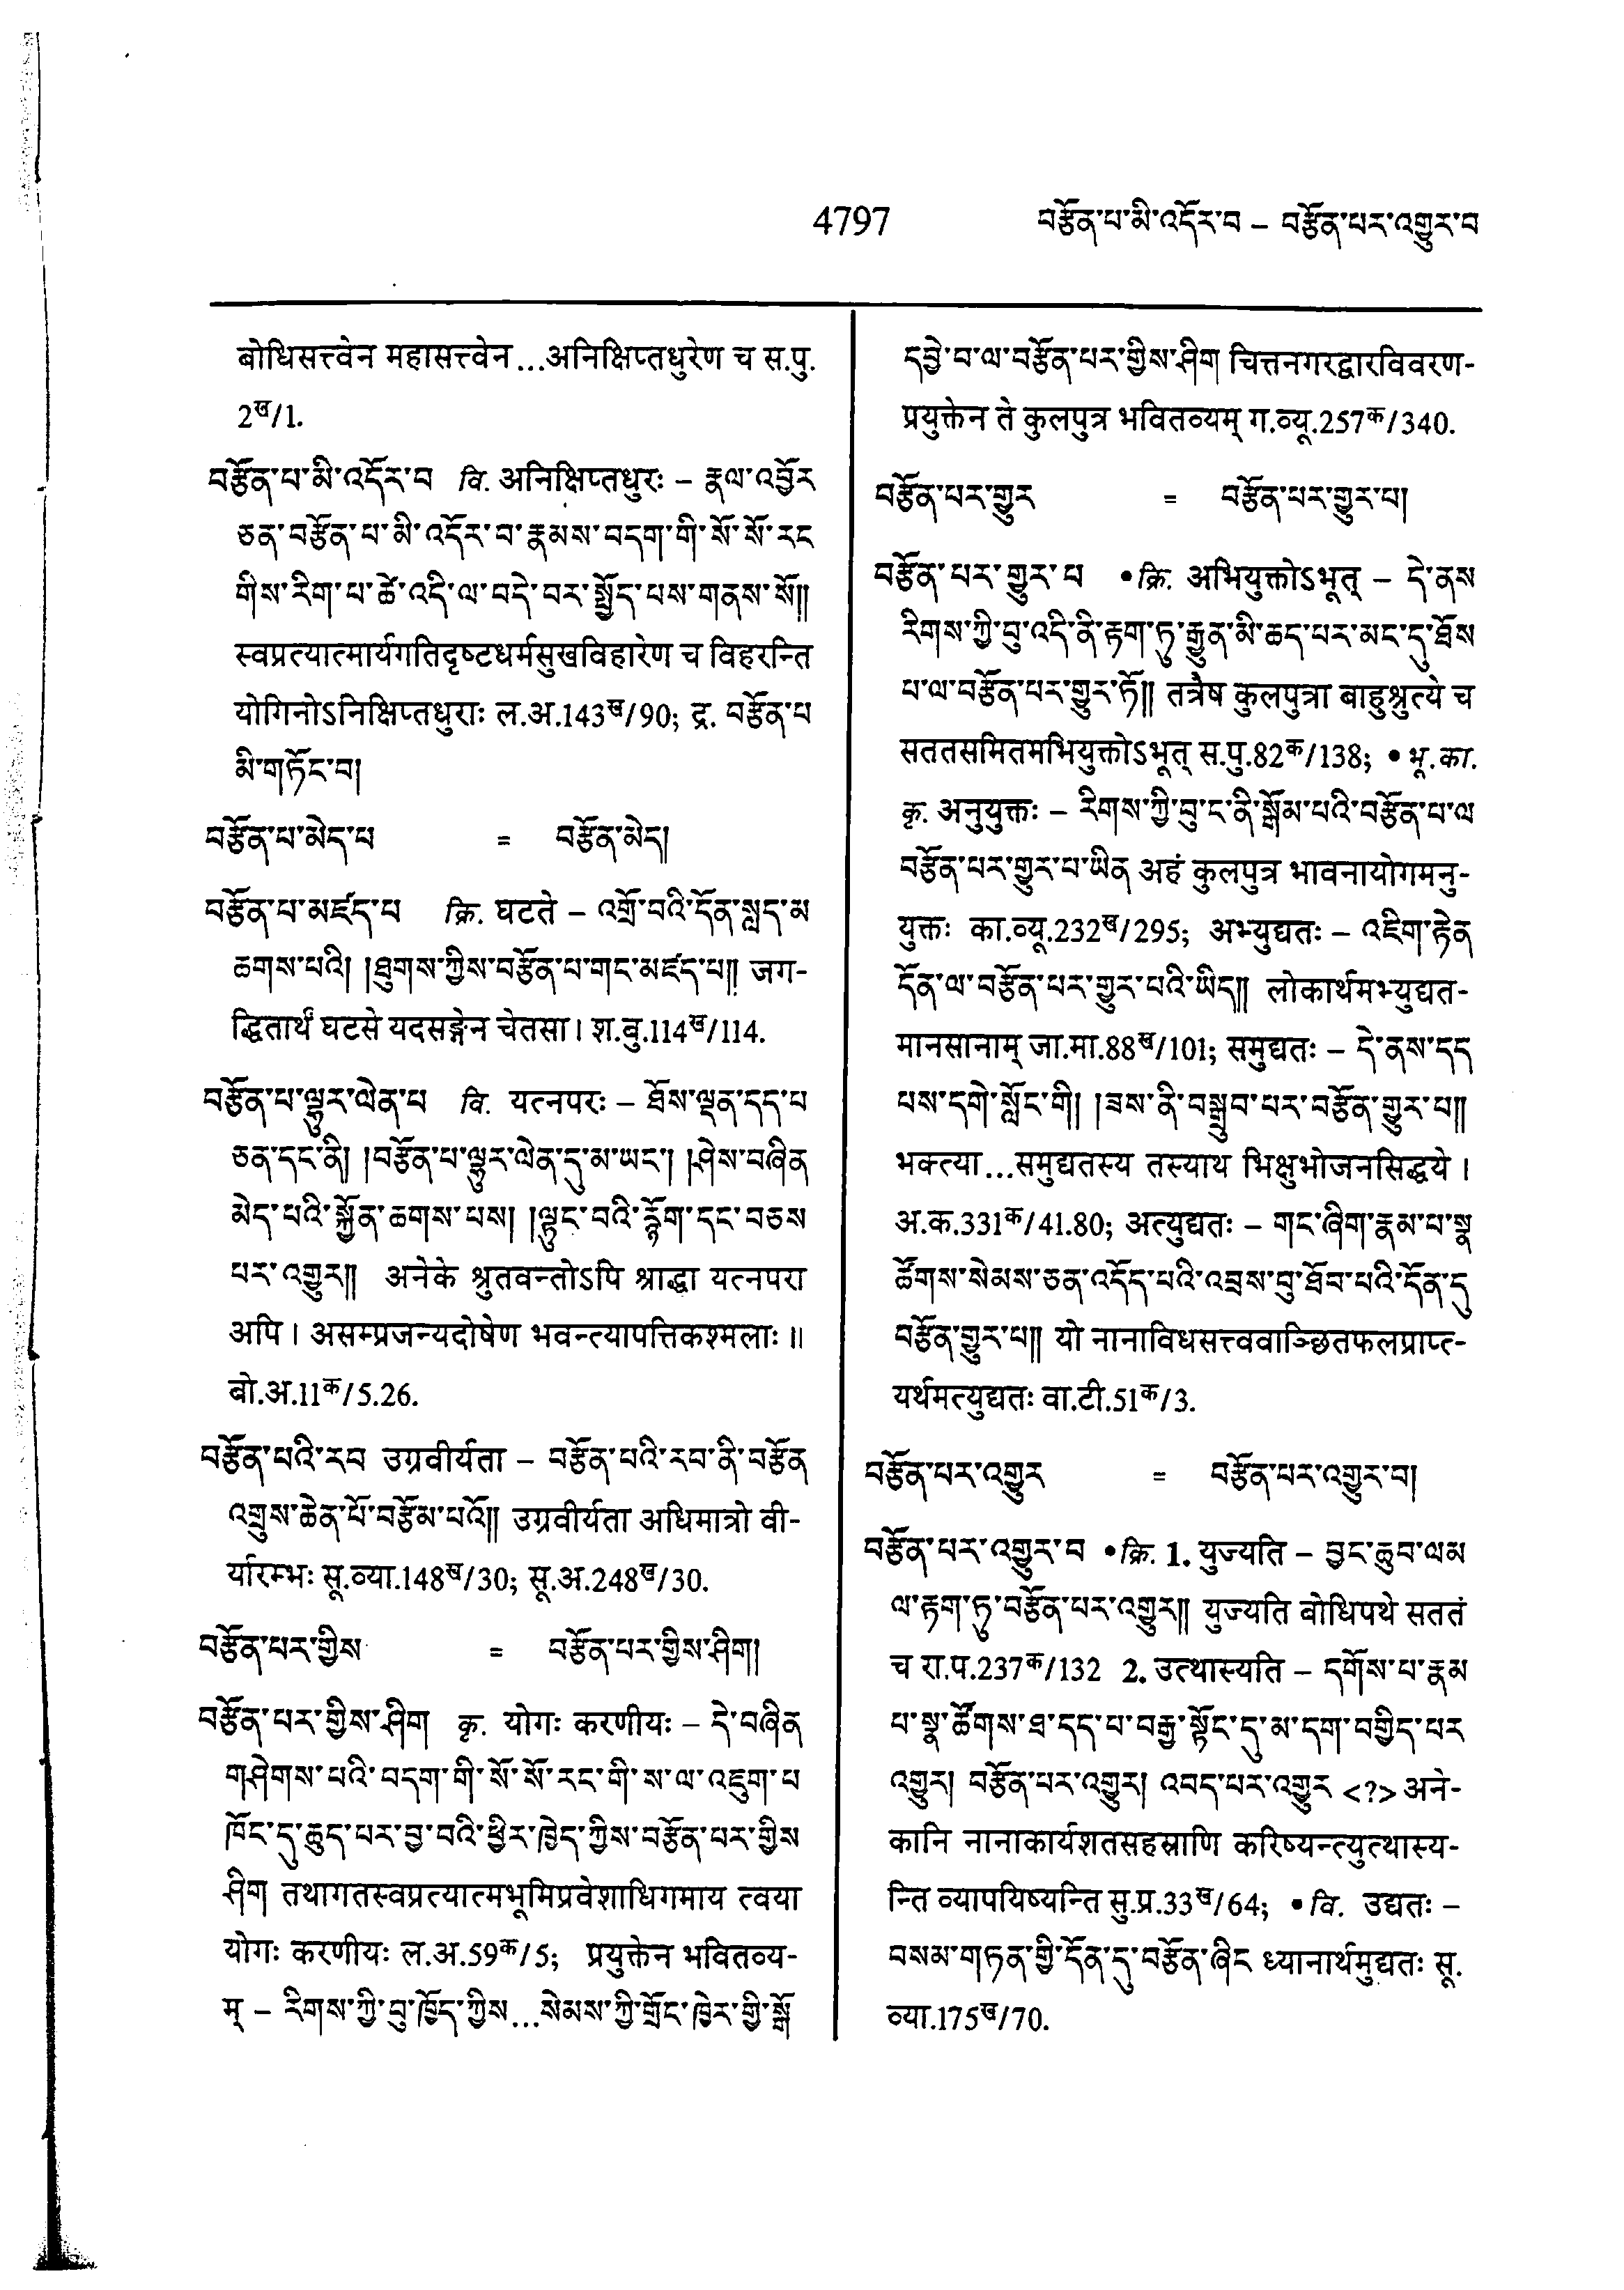 4797 བརྩོན་པ་མི་འདོར་བ – བརྩོན་པར་འགྱུར་བ
बोधिसत्त्वेन महासत्त्वेन...अनिक्षिप्तधुरेण च स.पु.
2ख/1.
བརྩོན་པ་མི་འདོར་བ वि. अनिक्षिप्तधुरः – རྣལ་འབྱོར
ཅན་བརྩོན་པ་མི་འདོར་བ་རྣམས་བདག་གི་སོ་སོ་རང
གིས་རིག་པ་ཚེ་འདི་ལ་བདེ་བར་སྤྱོད་པས་གནས་སོ།།
स्वप्रत्यात्मार्यगतिदृष्टधर्मसुखविहारेण च विहरन्ति
योगिनोऽनिक्षिप्तधुराः ल.अ.143ख/90; द्र. བརྩོན་པ
མི་གཏོང་བ།
བརྩོན་པ་མེད་པ = བརྩོན་མེད།
བརྩོན་པ་མཛད་པ क्रि. घटते – འགྲོ་བའི་དོན་སླད་མ
ཆགས་པའི། །ཐུགས་ཀྱིས་བརྩོན་པ་གང་མཛད་པ།། जग-
द्धितार्थं घटसे यदसङ्गेन चेतसा। श.बु.114ख/114.
བརྩོན་པ་ལྷུར་ལེན་པ वि. यत्नपरः – ཐོས་ལྡན་དད་པ
ཅན་དང་ནི། །བརྩོན་པ་ལྷུར་ལེན་དུ་མ་ཡང་། །ཤེས་བཞིན
མེད་པའི་སྐྱོན་ཆགས་པས། །ལྟུང་བའི་རྙོག་དང་བཅས
པར་འགྱུར།། अनेके श्रुतवन्तोऽपि श्राद्धा यत्नपरा
अपि। असम्प्रजन्यदोषेण भवन्त्यापत्तिकश्मलाः॥
बो.अ.11क/5.26.
བརྩོན་པའི་རབ उग्रवीर्यता – བརྩོན་པའི་རབ་ནི་བརྩོན
འགྲུས་ཆེན་པོ་བརྩོམ་པའོ།། उग्रवीर्यता अधिमात्रो वी-
र्यारम्भः सू.व्या.148ख/30; सू.अ.248ख/30.
བརྩོན་པར་གྱིས = བརྩོན་པར་གྱིས་ཤིག།
བརྩོན་པར་གྱིས་ཤིག कृ. योगः करणीयः – དེ་བཞིན
གཤེགས་པའི་བདག་གི་སོ་སོ་རང་གི་ས་ལ་འཇུག་པ
ཁོང་དུ་ཆུད་པར་བྱ་བའི་ཕྱིར་ཁྱེད་ཀྱིས་བརྩོན་པར་གྱིས
ཤིག तथागतस्वप्रत्यात्मभूमिप्रवेशाधिगमाय त्वया
योगः करणीयः ल.अ.59क/5; प्रयुक्तेन भवितव्य-
म् – རིགས་ཀྱི་བུ་ཁྱོད་ཀྱིས...སེམས་ཀྱི་གྲོང་ཁྱེར་གྱི་སྒོ
དབྱེ་བ་ལ་བརྩོན་པར་གྱིས་ཤིག चित्तनगरद्वारविवरण-
प्रयुक्तेन ते कुलपुत्र भवितव्यम् ग.व्यू.257क/340.
བརྩོན་པར་གྱུར = བརྩོན་པར་གྱུར་པ།
བརྩོན་པར་གྱུར་པ •क्रि. अभियुक्तोऽभूत् – དེ་ནས
རིགས་ཀྱི་བུ་འདི་ནི་རྟག་ཏུ་རྒྱུན་མི་ཆད་པར་མང་དུ་ཐོས
པ་ལ་བརྩོན་པར་གྱུར་ཏོ།། तत्रैष कुलपुत्रा बाहुश्रुत्ये च
सततसमितमभियुक्तोऽभूत् स.पु.82क/138; • भू.का.
कृ. अनुयुक्तः – རིགས་ཀྱི་བུ་ང་ནི་སྒོམ་པའི་བརྩོན་པ་ལ
བརྩོན་པར་གྱུར་པ་ཡིན अहं कुलपुत्र भावनायोगमनु-
युक्तः का.व्यू.232ख/295; अभ्युद्यतः – འཇིག་རྟེན
དོན་ལ་བརྩོན་པར་གྱུར་པའི་ཡིད།། लोकार्थमभ्युद्यत-
मानसानाम् जा.मा.88ख/101; समुद्यतः – དེ་ནས་དད
པས་དགེ་སློང་གི། །ཟས་ནི་བསྒྲུབ་པར་བརྩོན་གྱུར་པ།།
भक्त्या...समुद्यतस्य तस्याथ भिक्षुभोजनसिद्धये।
अ.क.331क/41.80; अत्युद्यतः – གང་ཞིག་རྣམ་པ་སྣ
ཚོགས་སེམས་ཅན་འདོད་པའི་འབྲས་བུ་ཐོབ་པའི་དོན་དུ
བརྩོན་གྱུར་པ།། यो नानाविधसत्त्ववाञ्छितफलप्राप्त्-
यर्थमत्युद्यतः वा.टी.51क/3.
བརྩོན་པར་འགྱུར = བརྩོན་པར་འགྱུར་བ།
བརྩོན་པར་འགྱུར་བ •क्रि. 1. युज्यति – བྱང་ཆུབ་ལམ
ལ་རྟག་ཏུ་བརྩོན་པར་འགྱུར།། युज्यति बोधिपथे सततं
च रा.प.237क/132 2. उत्थास्यति – དགོས་པ་རྣམ
པ་སྣ་ཚོགས་ཐ་དད་པ་བརྒྱ་སྟོང་དུ་མ་དག་བགྱིད་པར
འགྱུར། བརྩོན་པར་འགྱུར། འབད་པར་འགྱུར <?> अने-
कानि नानाकार्यशतसहस्राणि करिष्यन्त्युत्थास्य-
न्ति व्यापयिष्यन्ति सु.प्र.33ख/64; •वि. उद्यतः –
བསམ་གཏན་གྱི་དོན་དུ་བརྩོན་ཞིང ध्यानार्थमुद्यतः सू.
व्या.175ख/70.